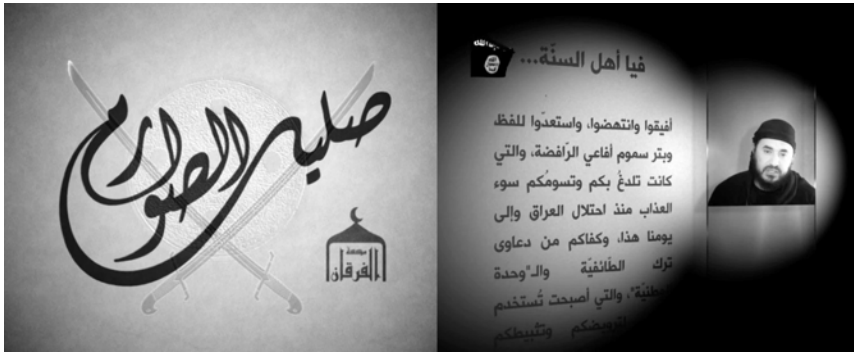 صليل الصوارم
مؤسسة
الفرقان
فيا أهل السنّة...
أفيقوا وانتهضوا، واستعدّوا للفظ
وبتر سموم أفاعي الرّافضة، والتي
كانت تلدغُ بكم وتسومُكم سوء
العذاب منذ احتلال العراق وإلى
يومنا هذا، وكفاكم من دعاوى
ترك الطّائفيّة والـ"وحدة
الوطنيّة"، والتي أصبحت تُستخدم
لترويضكم وتثبيطكم